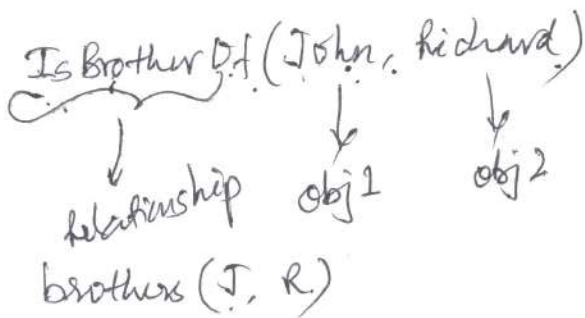 IsBrotherOf(John, Richard)
relationship obj1 obj2
brothers (J, R)